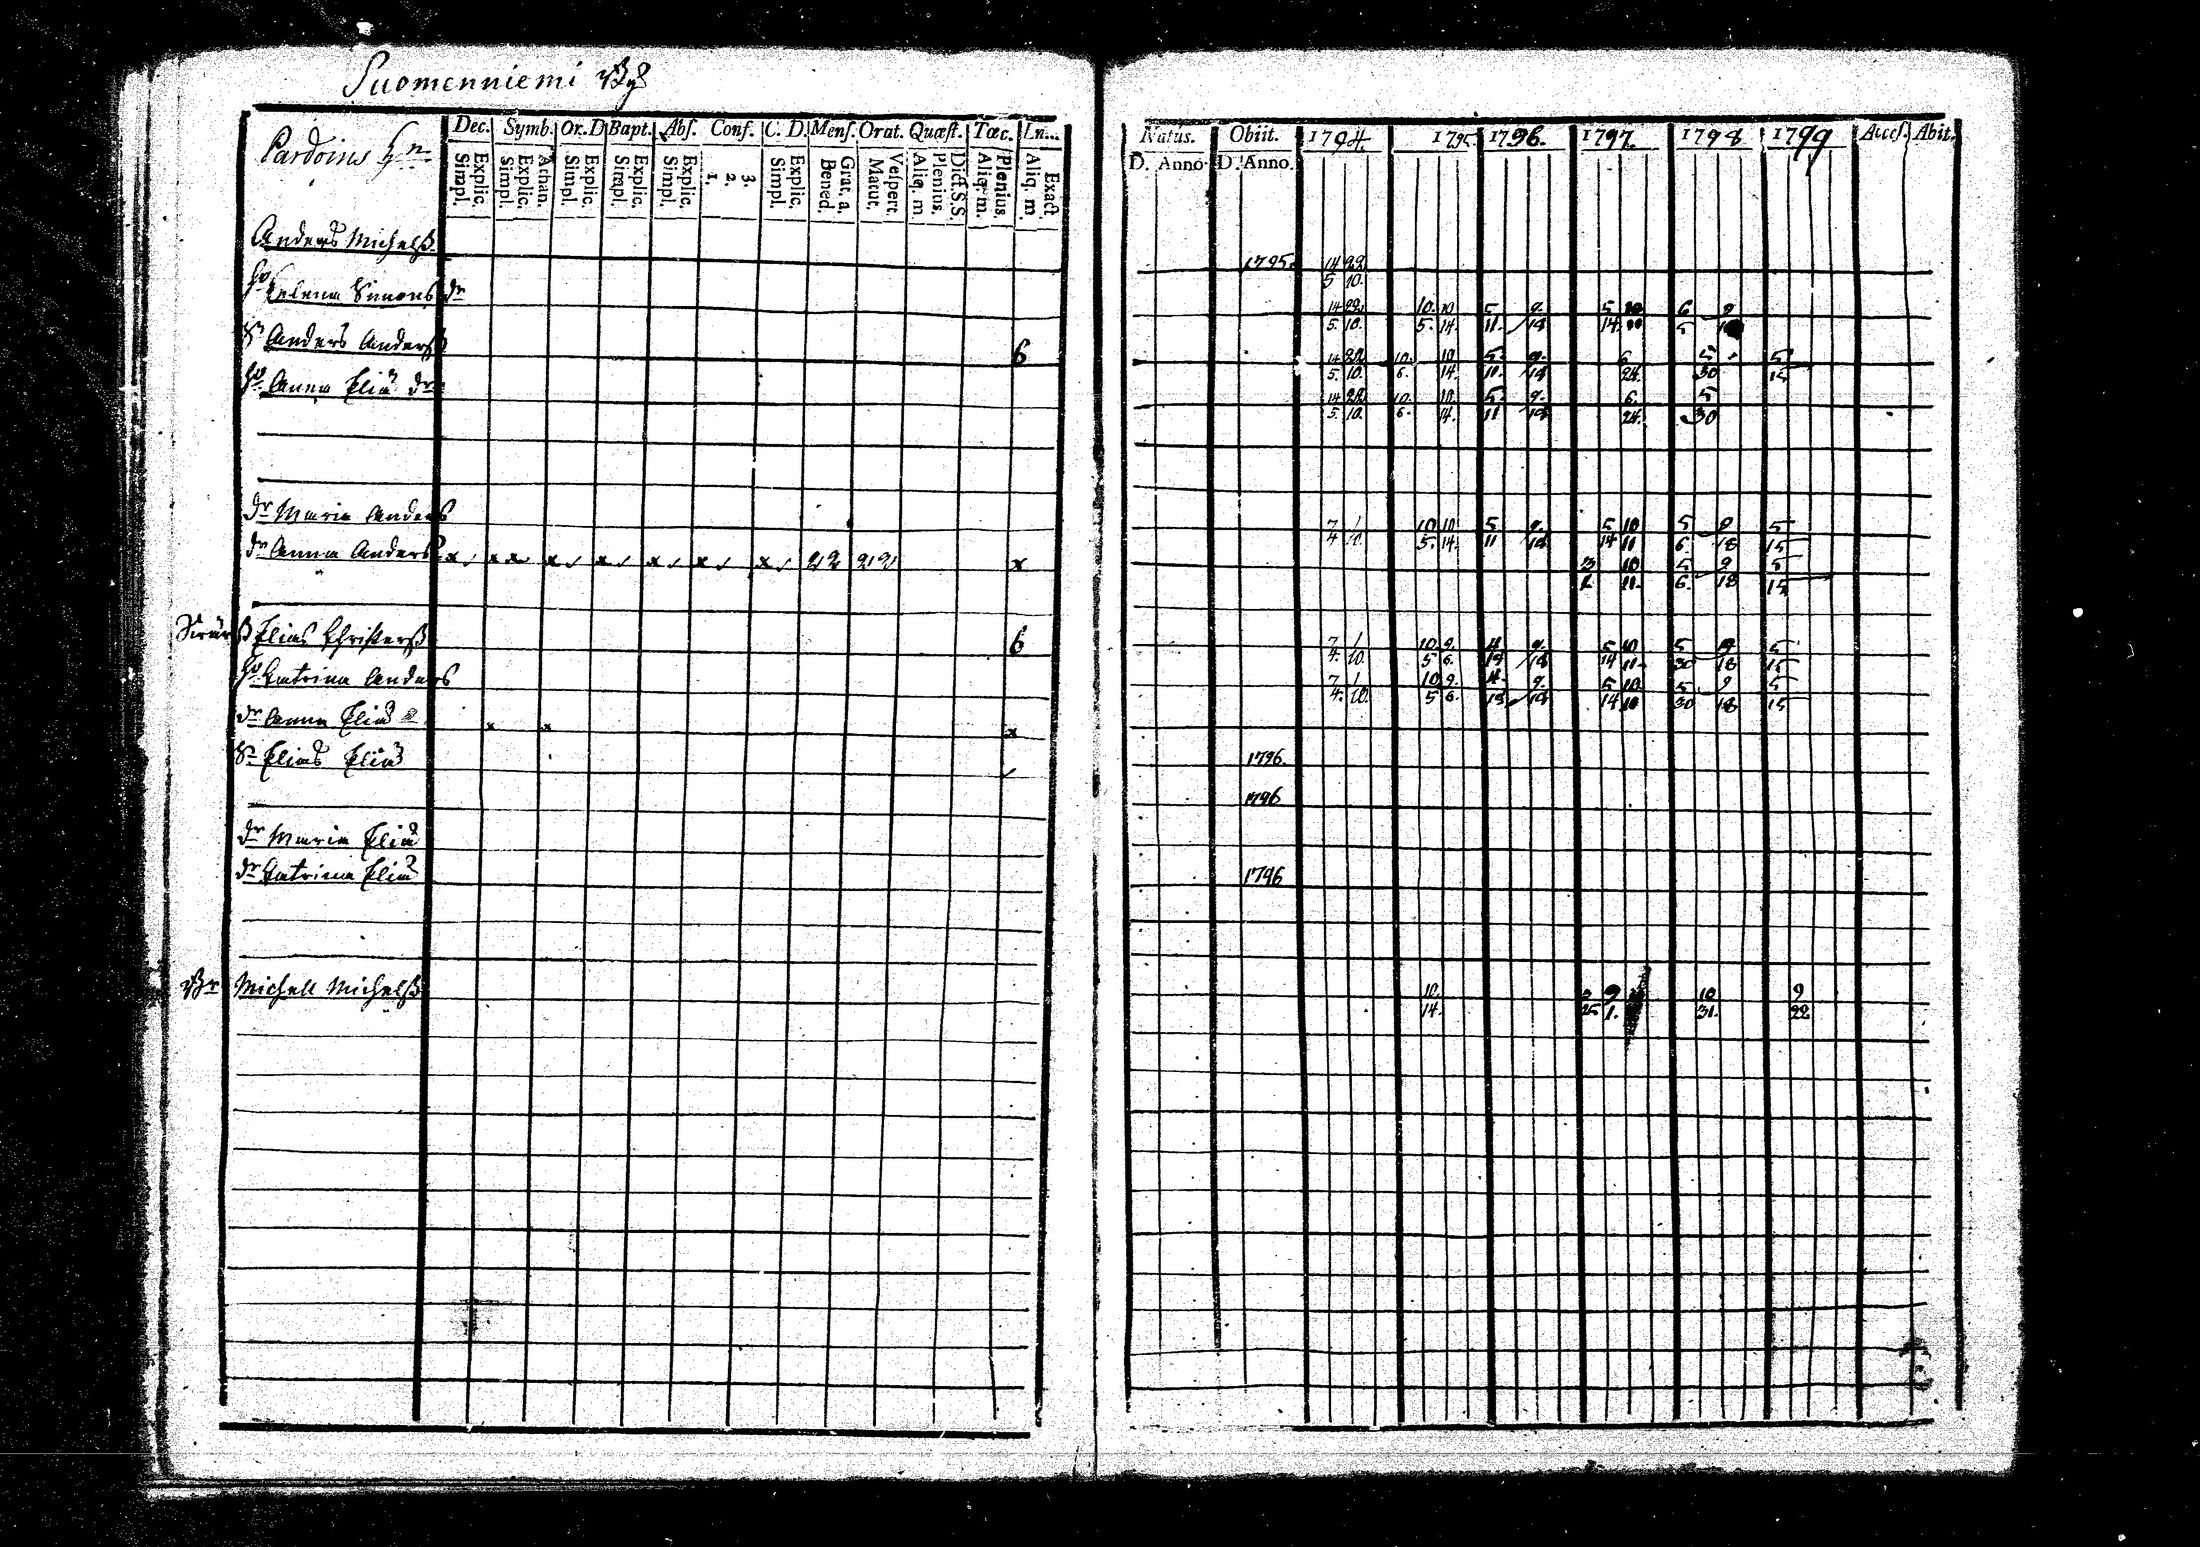 Suomenniemi
Dec. Symb. Or. D Bapt. Abs. Conf. C. D. Mens. Orat. Quæst. Tœc. Ln...
Pardoins Hn
Explic. Simpl. Athan. Explic. Simpl. Explic. Simpl. Explic. Simpl. Explic. Simpl. 3. 2. 1. Explic. Simpl. Grat. a. Bened. Vespert. Matut. Dict. S.S. Plenius. Aliq. m. Plenius. Aliq. m. Exact Aliq. m
Anders Michelsß
hu Helena Simons dr
Sn Anders Andersß 6
hu Anna Eliæ dr
dr Maria Anders
dr Anna Anders x x x x x x x x x
Elias Christersß 6
hu Catrina Anders
dr Anna Eliæ x x x
Sn Elias Eliæ
dr Maria Eliæ
dr Catrina Eliæ
Michell Michelsß
Natus. Obiit. 1794. 1795. 1796. 1797. 1798 1799 Acces. Abit.
D. Anno D. Anno.
1795. 14 22
5 10.
14 22 10. 10 5 9. 5 10 6 9
5. 10. 5. 14. 11. 18 14. 5
14 22 10. 10 5. 9. 6 5 5
5. 10. 6. 14. 11. 18 24. 30 15
14 22 10. 10. 5. 9. 6. 5
5. 10. 6. 14. 11 18 24. 30
7 1 10 10 5 9. 5 10 5 9 5
4 10. 5. 14. 11 18 14 11 6. 18 15
3 10 5 9 5
11. 6. 18 15
7 1 10 9. 4 9. 5 10 5 9 5
4. 10. 5 6. 18 18 14 11. 30 18 15
7 1 10 9. 4. 9. 5 10 5 9 5
4. 10. 5 6. 18 18 14 11 30 18 15
1796.
1796
1796
10. 9 10 9
14. 25 1. 31. 22